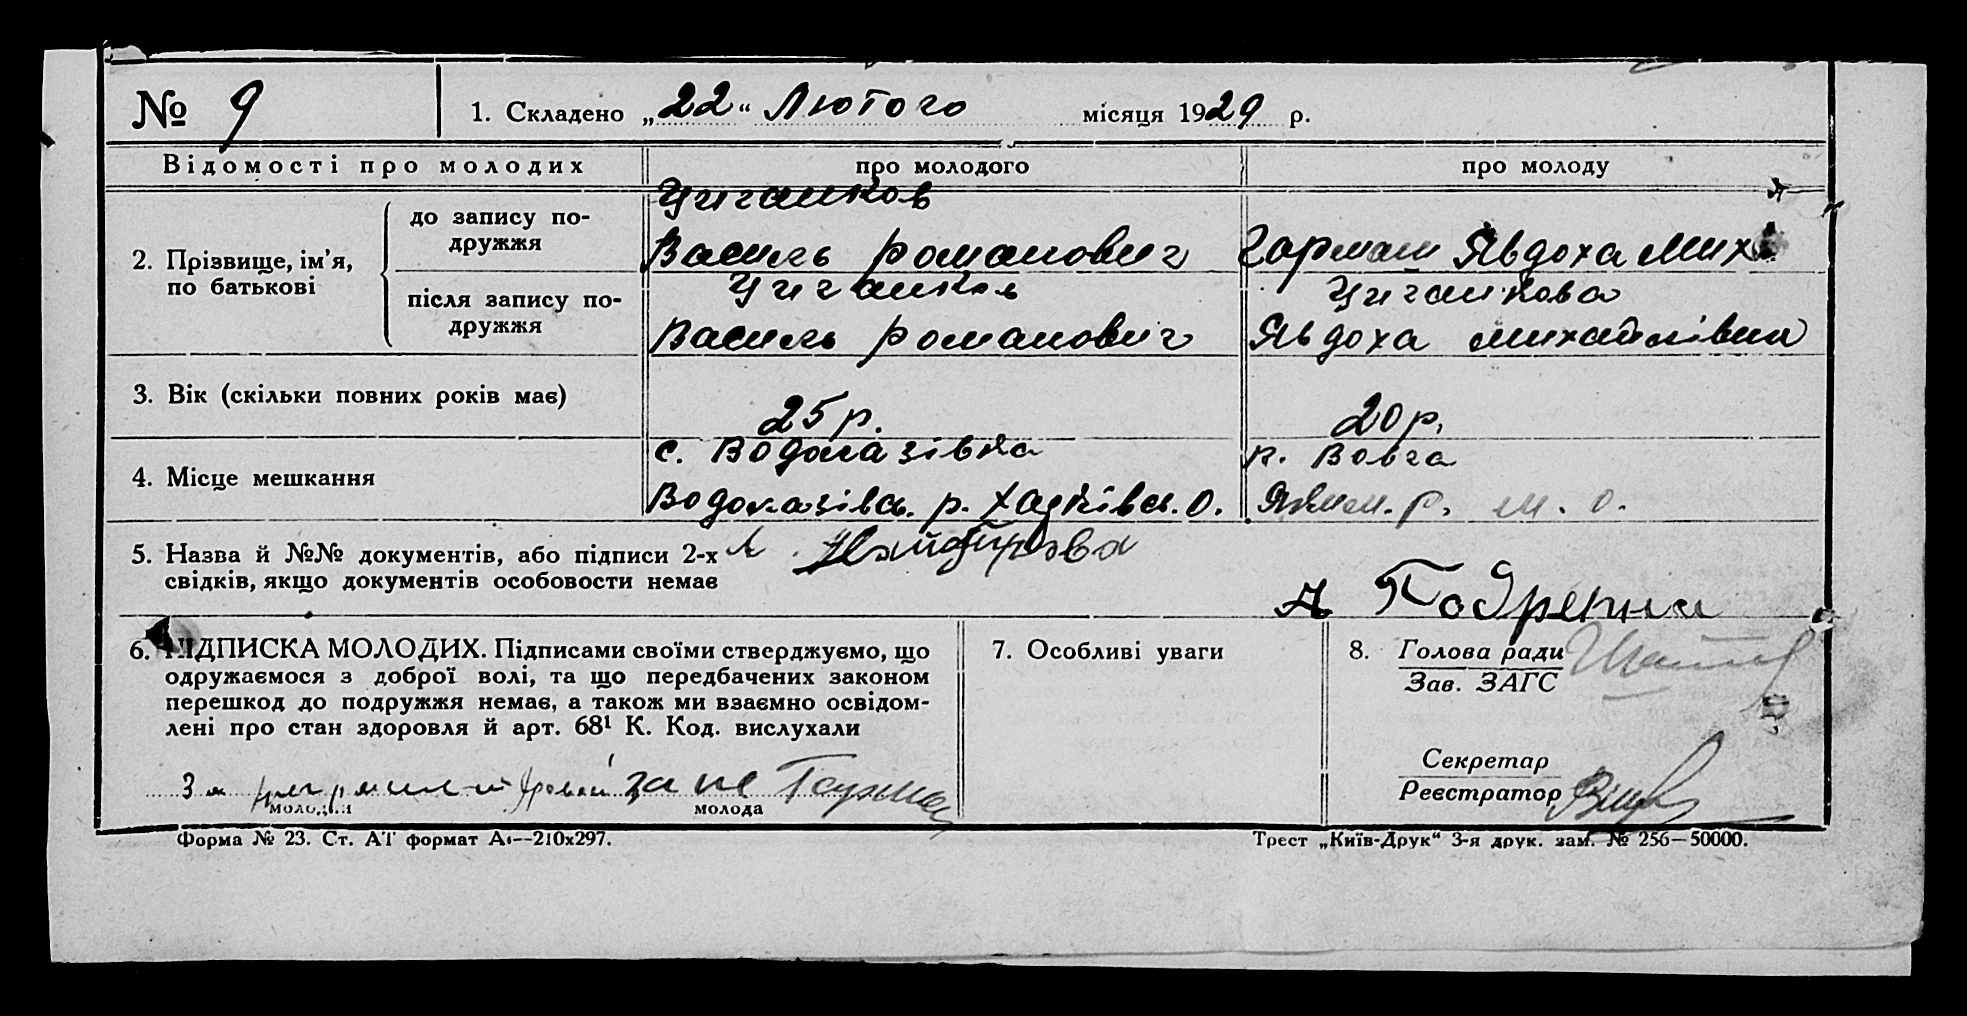 № 9
1. Складено „22“ Лютого місяця 1929 р.
Відомості про молодих
про молодого
про молоду
2. Прізвище, ім’я, по батькові
до запису подружжя
Циганков
Василь Романович
Гармаш Явдоха Мих
після запису подружжя
Циганков
Василь Романович
Циганкова
Явдоха Михайлівна
3. Вік (скільки повних років має)
25 р.
20 р.
4. Місце мешкання
с. Водолазівка
Водолазівсь. р. Харківсь. О.
х. Вовча
Яким. р. м. о.
5. Назва й №№ документів, або підписи 2-х
свідків, якщо документів особовости немає
А
6. ПІДПИСКА МОЛОДИХ. Підписами своїми стверджуємо, що
одружаємося з доброї волі, та що передбачених законом
перешкод до подружжя немає, а також ми взаємно освідом-
лені про стан здоровля й арт. 68¹ К. Код. вислухали
За за не
молодий
молода
7. Особливі уваги
8. Голова ради
Зав. ЗАГС
Секретар
Реєстратор
Форма № 23. Ст. АТ формат А₄—210х297.
Трест „Київ-Друк“ 3-я друк. зам. № 256—50000.